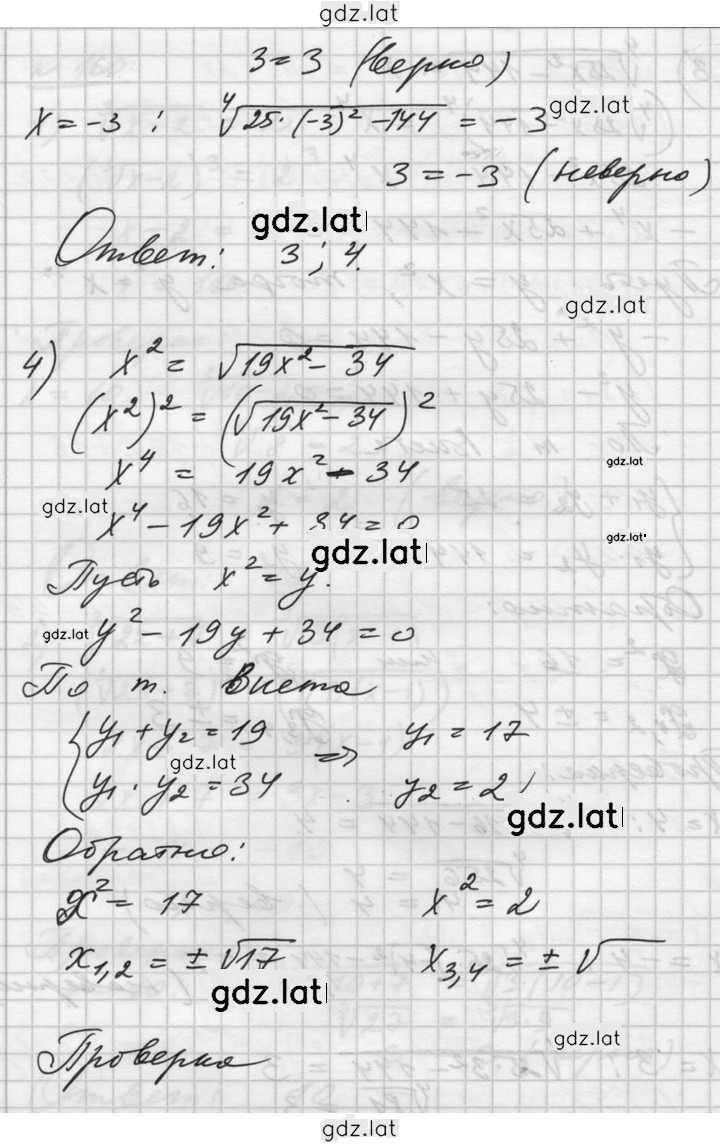 gdz.lat
3 = 3 (верно)
x = -3 : ⁴√(25·(-3)² - 144) = -3 gdz.lat
3 = -3 (неверно)
gdz.lat
Ответ: 3; 4.
gdz.lat
4) x² = √(19x² - 34)
(x²)² = (√(19x² - 34))²
x⁴ = 19x² - 34 gdz.lat
gdz.lat x⁴ - 19x² + 34 = 0 gdz.lat
gdz.lat
Пусть x² = y.
gdz.lat y² - 19y + 34 = 0
По т. Виета
{ y₁ + y₂ = 19 ⇒ y₁ = 17
gdz.lat
y₁ · y₂ = 34 y₂ = 2
gdz.lat
Обратно:
x² = 17 x² = 2
x₁,₂ = ± √17 x₃,₄ = ± √
gdz.lat
Проверка gdz.lat
gdz.lat